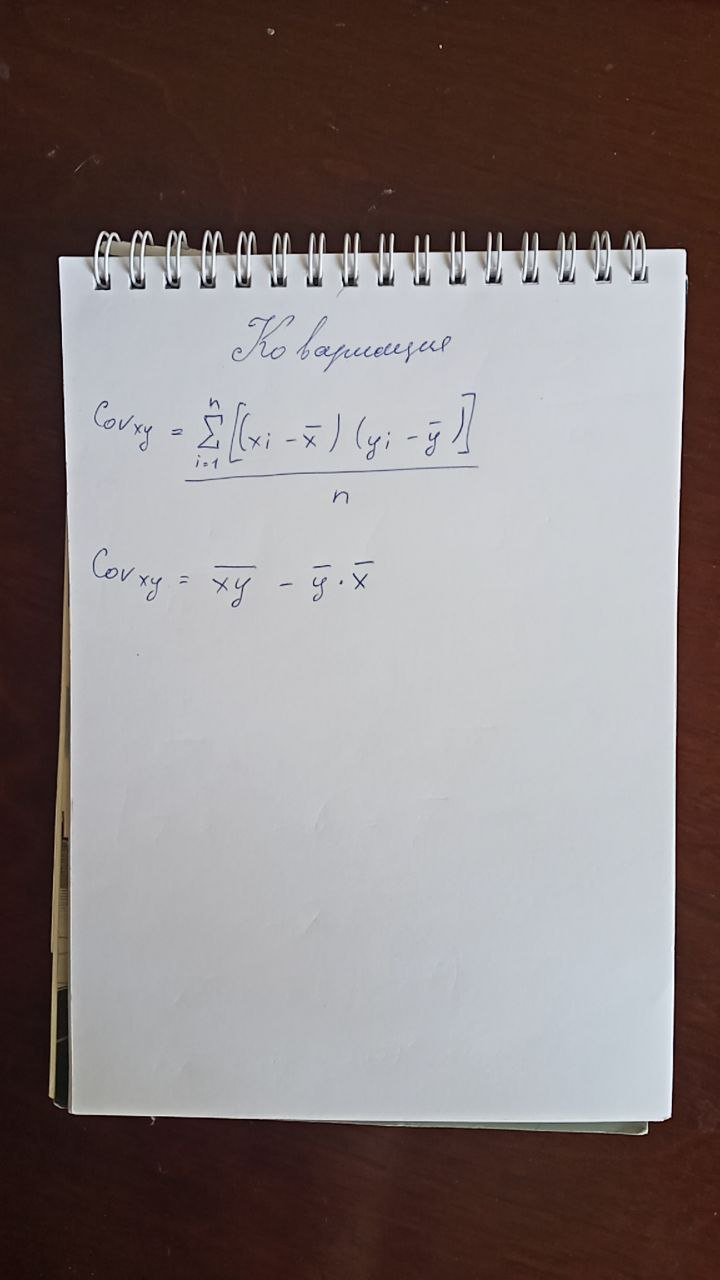 Ковариация
Cov xy = n Σ i=1 [(xi - x̄) (yi - ȳ)]
n
Cov xy = x̅y̅ - ȳ · x̄